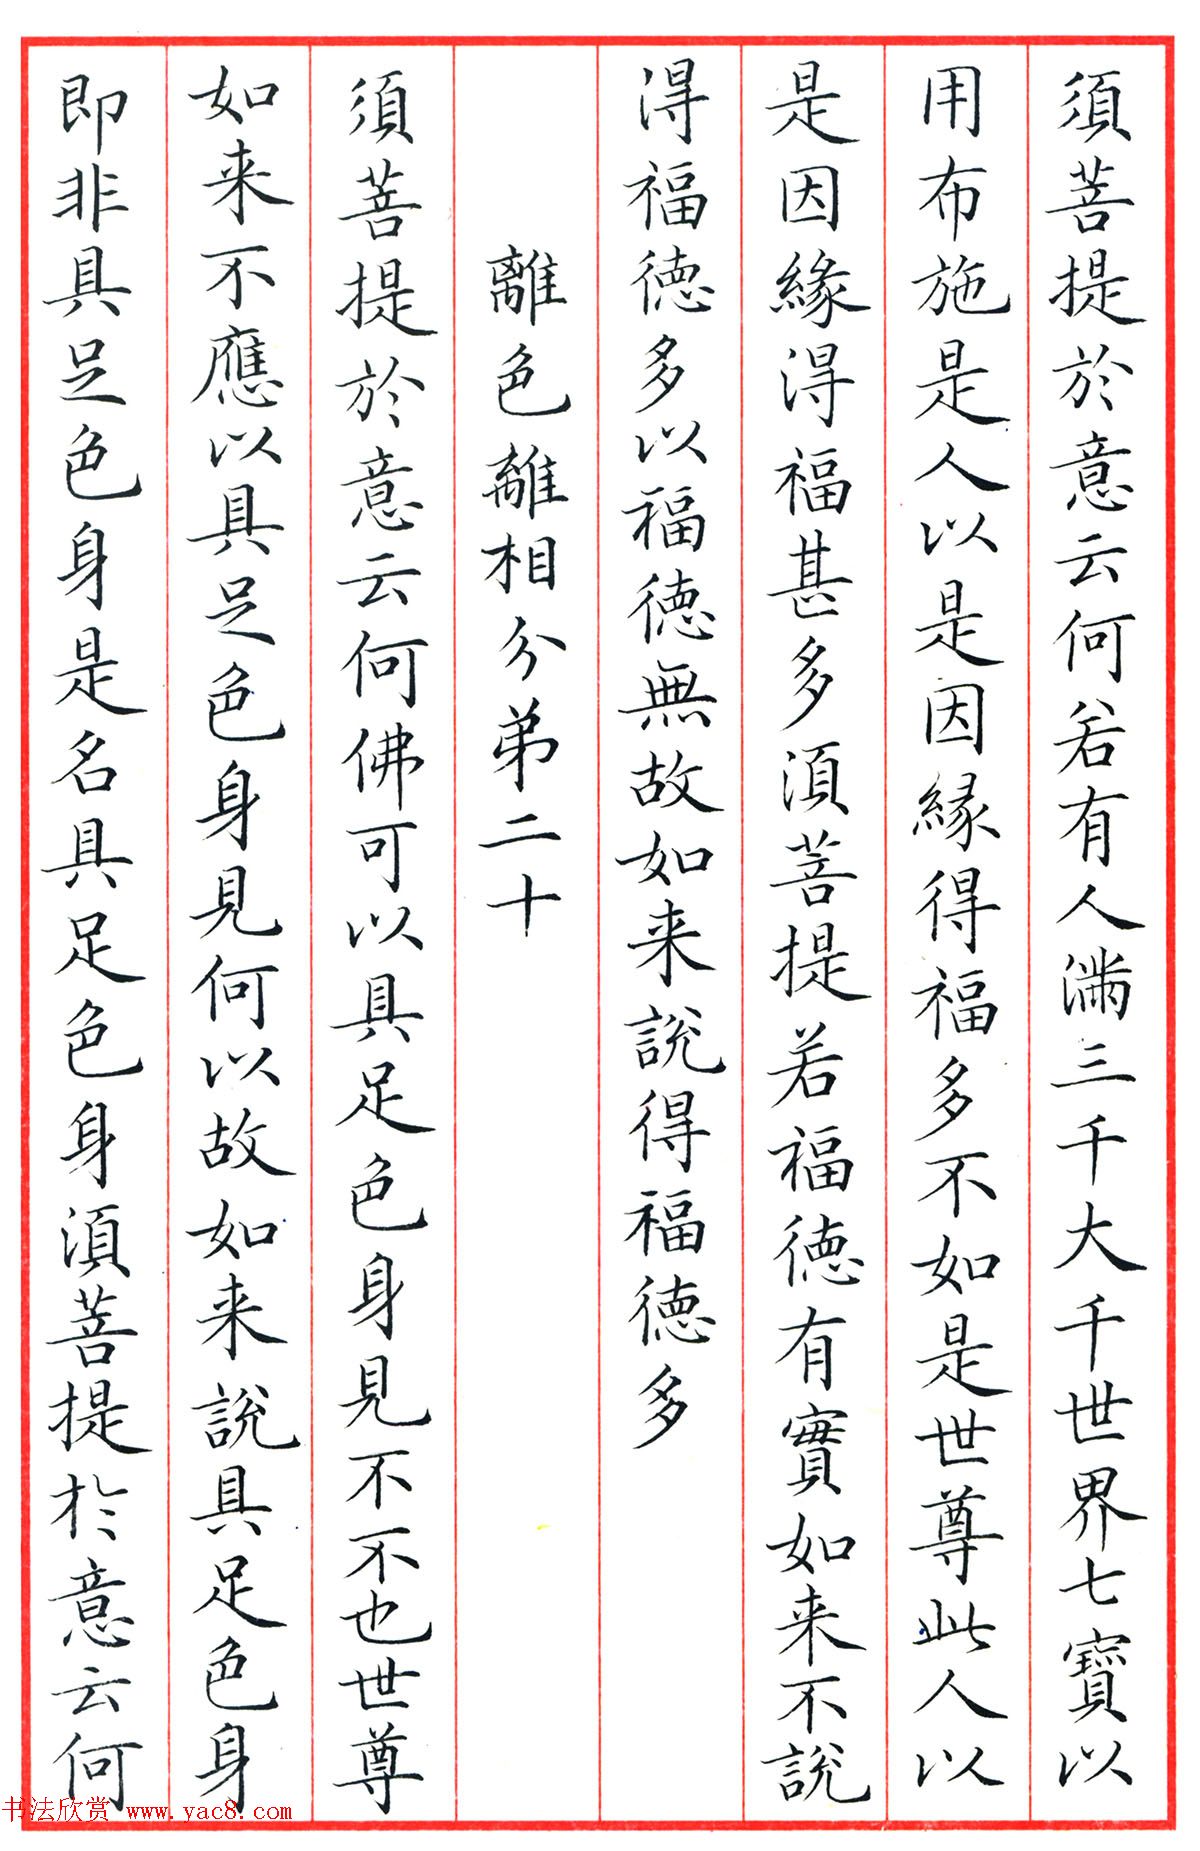 須菩提於意云何若有人滿三千大千世界七寶以
用布施是人以是因緣得福多不如是世尊此人以
是因緣得福甚多須菩提若福德有實如来不説
得福德多以福德無故如来説得福德多
離色離相分弟二十
須菩提於意云何佛可以具足色身見不不也世尊
如来不應以具足色身見何以故如来説具足色身
即非具足色身是名具足色身須菩提於意云何
书法欣赏 www.yac8.com